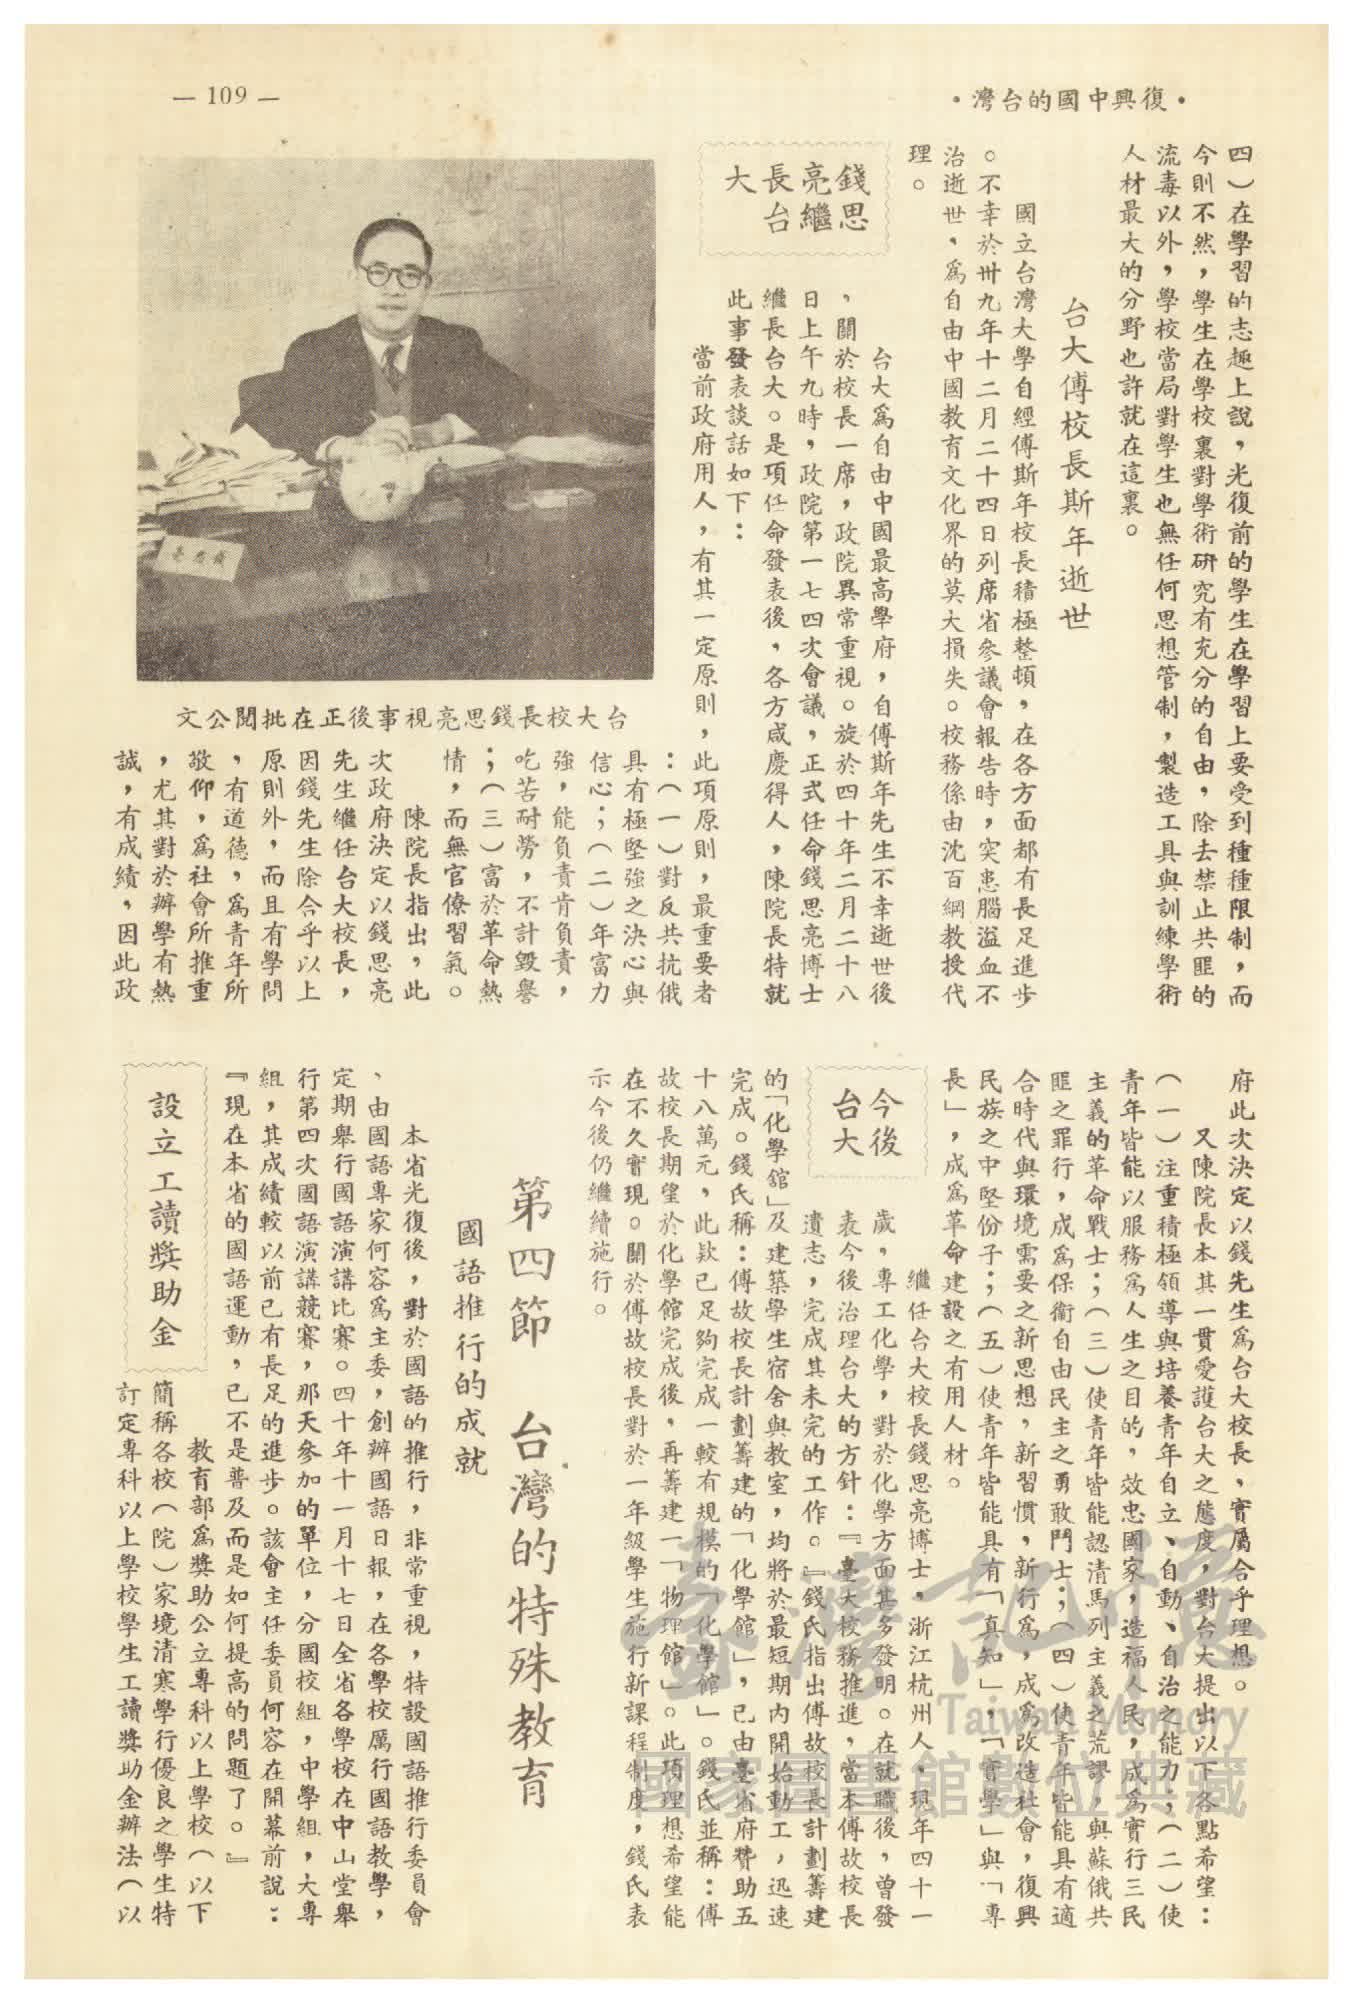 — 109 —
•復興中國的台灣•
四）在學習的志趣上說，光復前的學生在學習上要受到種種限制，而
今則不然，學生在學校裏對學術研究有充分的自由，除去禁止共匪的
流毒以外，學校當局對學生也無任何思想管制，製造工具與訓練學術
人材最大的分野也許就在這裏。
台大傅校長斯年逝世
國立台灣大學自經傅斯年校長積極整頓，在各方面都有長足進步
。不幸於卅九年十二月二十四日列席省參議會報告時，突患腦溢血不
治逝世，爲自由中國教育文化界的莫大損失。校務係由沈百綱教授代
理。
錢思
亮繼
長台
大
台大爲自由中國最高學府，自傅斯年先生不幸逝世後
，關於校長一席，政院異常重視。旋於四十年二月二十八
日上午九時，政院第一七四次會議，正式任命錢思亮博士
繼長台大。是項任命發表後，各方咸慶得人，陳院長特就
此事發表談話如下：
當前政府用人，有其一定原則，此項原則，最重要者
：（一）對反共抗俄
具有極堅強之決心與
信心；（二）年富力
強，能負責肯負責，
吃苦耐勞，不計毀譽
；（三）富於革命熱
情，而無官僚習氣。
陳院長指出，此
次政府決定以錢思亮
先生繼任台大校長，
因錢先生除合乎以上
原則外，而且有學問
，有道德，爲青年所
敬仰，爲社會所推重
，尤其對於辦學有熱
誠，有成績，因此政
錢思亮
台大校長錢思亮視事後正在批閱公文
府此次決定以錢先生爲台大校長，實屬合乎理想。
又陳院長本其一貫愛護台大之態度，對台大提出以下各點希望：
（一）注重積極領導與培養青年自立、自動、自治之能力；（二）使
青年皆能以服務爲人生之目的，效忠國家，造福人民，成爲實行三民
主義的革命戰士；（三）使青年皆能認清馬列主義之荒謬，與蘇俄共
匪之罪行，成爲保衛自由民主之勇敢鬥士；（四）使青年皆能具有適
合時代與環境需要之新思想，新習慣，新行爲，成爲改造社會，復興
民族之中堅份子；（五）使青年皆能具有「真知」，「實學」與「專
長」，成爲革命建設之有用人材。
今後
台大
繼任台大校長錢思亮博士，浙江杭州人，現年四十一
歲，專工化學，對於化學方面甚多發明。在就職後，曾發
表今後治理台大的方針：『臺大校務推進，當本傅故校長
遺志，完成其未完的工作。』錢氏指出傅故校長計劃籌建
的「化學館」及建築學生宿舍與教室，均將於最短期內開始動工，迅速
完成。錢氏稱：傅故校長計劃籌建的「化學館」，已由臺省府贊助五
十八萬元，此欵已足夠完成一較有規模的「化學館」。錢氏並稱：傅
故校長期望於化學館完成後，再籌建一「物理館」。此項理想希望能
在不久實現。關於傅故校長對於一年級學生施行新課程制度，錢氏表
示今後仍繼續施行。
第四節　台灣的特殊教育
國語推行的成就
本省光復後，對於國語的推行，非常重視，特設國語推行委員會
、由國語專家何容爲主委，創辦國語日報，在各學校厲行國語教學，
定期舉行國語演講比賽。四十年十一月十七日全省各學校在中山堂舉
行第四次國語演講競賽，那天參加的單位，分國校組，中學組，大專
組，其成績較以前已有長足的進步。該會主任委員何容在開幕前說：
『現在本省的國語運動，已不是普及而是如何提高的問題了。』
設立工讀獎助金
教育部爲獎助公立專科以上學校（以下
簡稱各校（院）家境清寒學行優良之學生特
訂定專科以上學校學生工讀獎助金辦法（以
臺灣記憶
Taiwan Memory
國家圖書館數位典藏